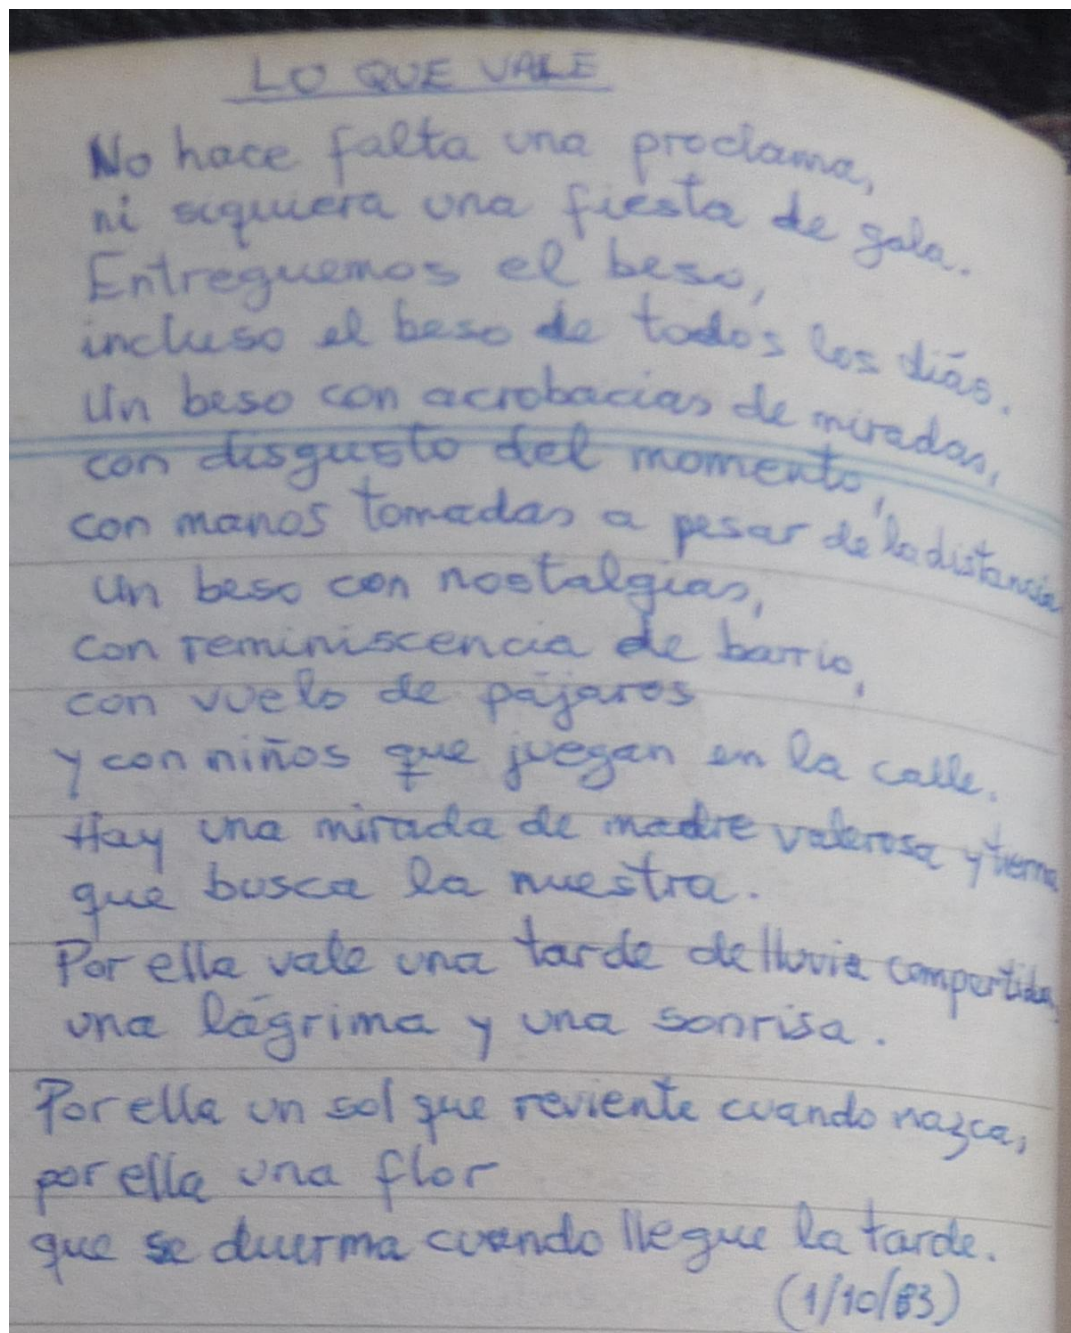 LO QUE VALE
No hace falta una proclama,
ni siquiera una fiesta de gala.
Entreguemos el beso,
incluso el beso de todos los días.
Un beso con acrobacias de miradas,
con disgusto del momento,
con manos tomadas a pesar de la distancia
Un beso con nostalgias,
con reminiscencia de barrio,
con vuelo de pájaros
y con niños que juegan en la calle.
Hay una mirada de madre valerosa y tierna
que busca la nuestra.
Por ella vale una tarde de lluvia compartida,
una lágrima y una sonrisa.
Por ella un sol que reviente cuando nazca,
por ella una flor
que se duerma cuando llegue la tarde.
(1/10/83)